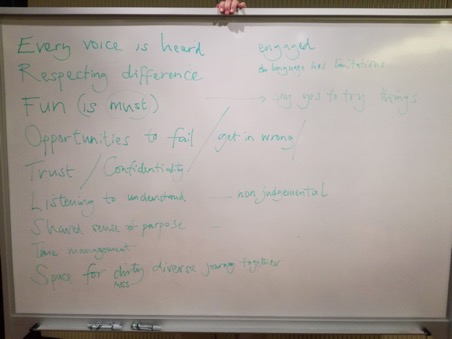 Every voice is heard engaged
Respecting difference language has limitations
Fun (is must) → say yes to try things
Opportunities to fail / get in wrong /
Trust / Confidentiality
Listening to understand — non judgemental
Shared sense of purpose —
Time management
Space for dirty diverse journey together
ness